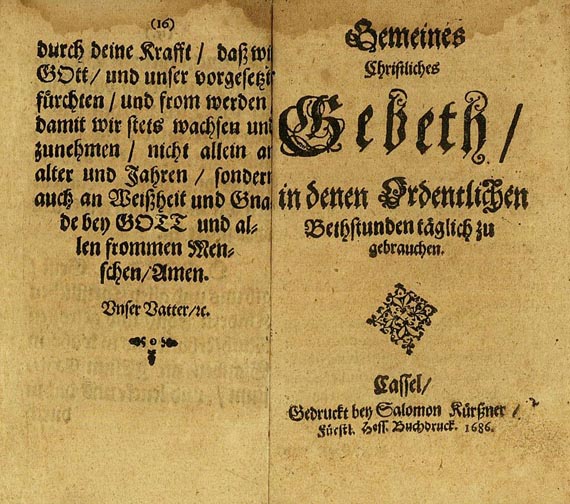 (16)
durch deine Krafft / daß wi
GOtt / und unser vorgesetzt
fürchten / und from werden
damit wir stets wachsen und
zunehmen / nicht allein an
alter und Jahren / sondern
auch an Weißheit und Gna
de bey GOTT und al-
len frommen Men-
schen / Amen.
Vnser Vatter / ꝛc.
Gemeines
Christliches
Gebeth /
in denen Ordentlichen
Bethstunden täglich zu
gebrauchen.
Cassel /
Gedruckt bey Salomon Kürßner /
Fürstl. Hess. Buchdruck. 1686.